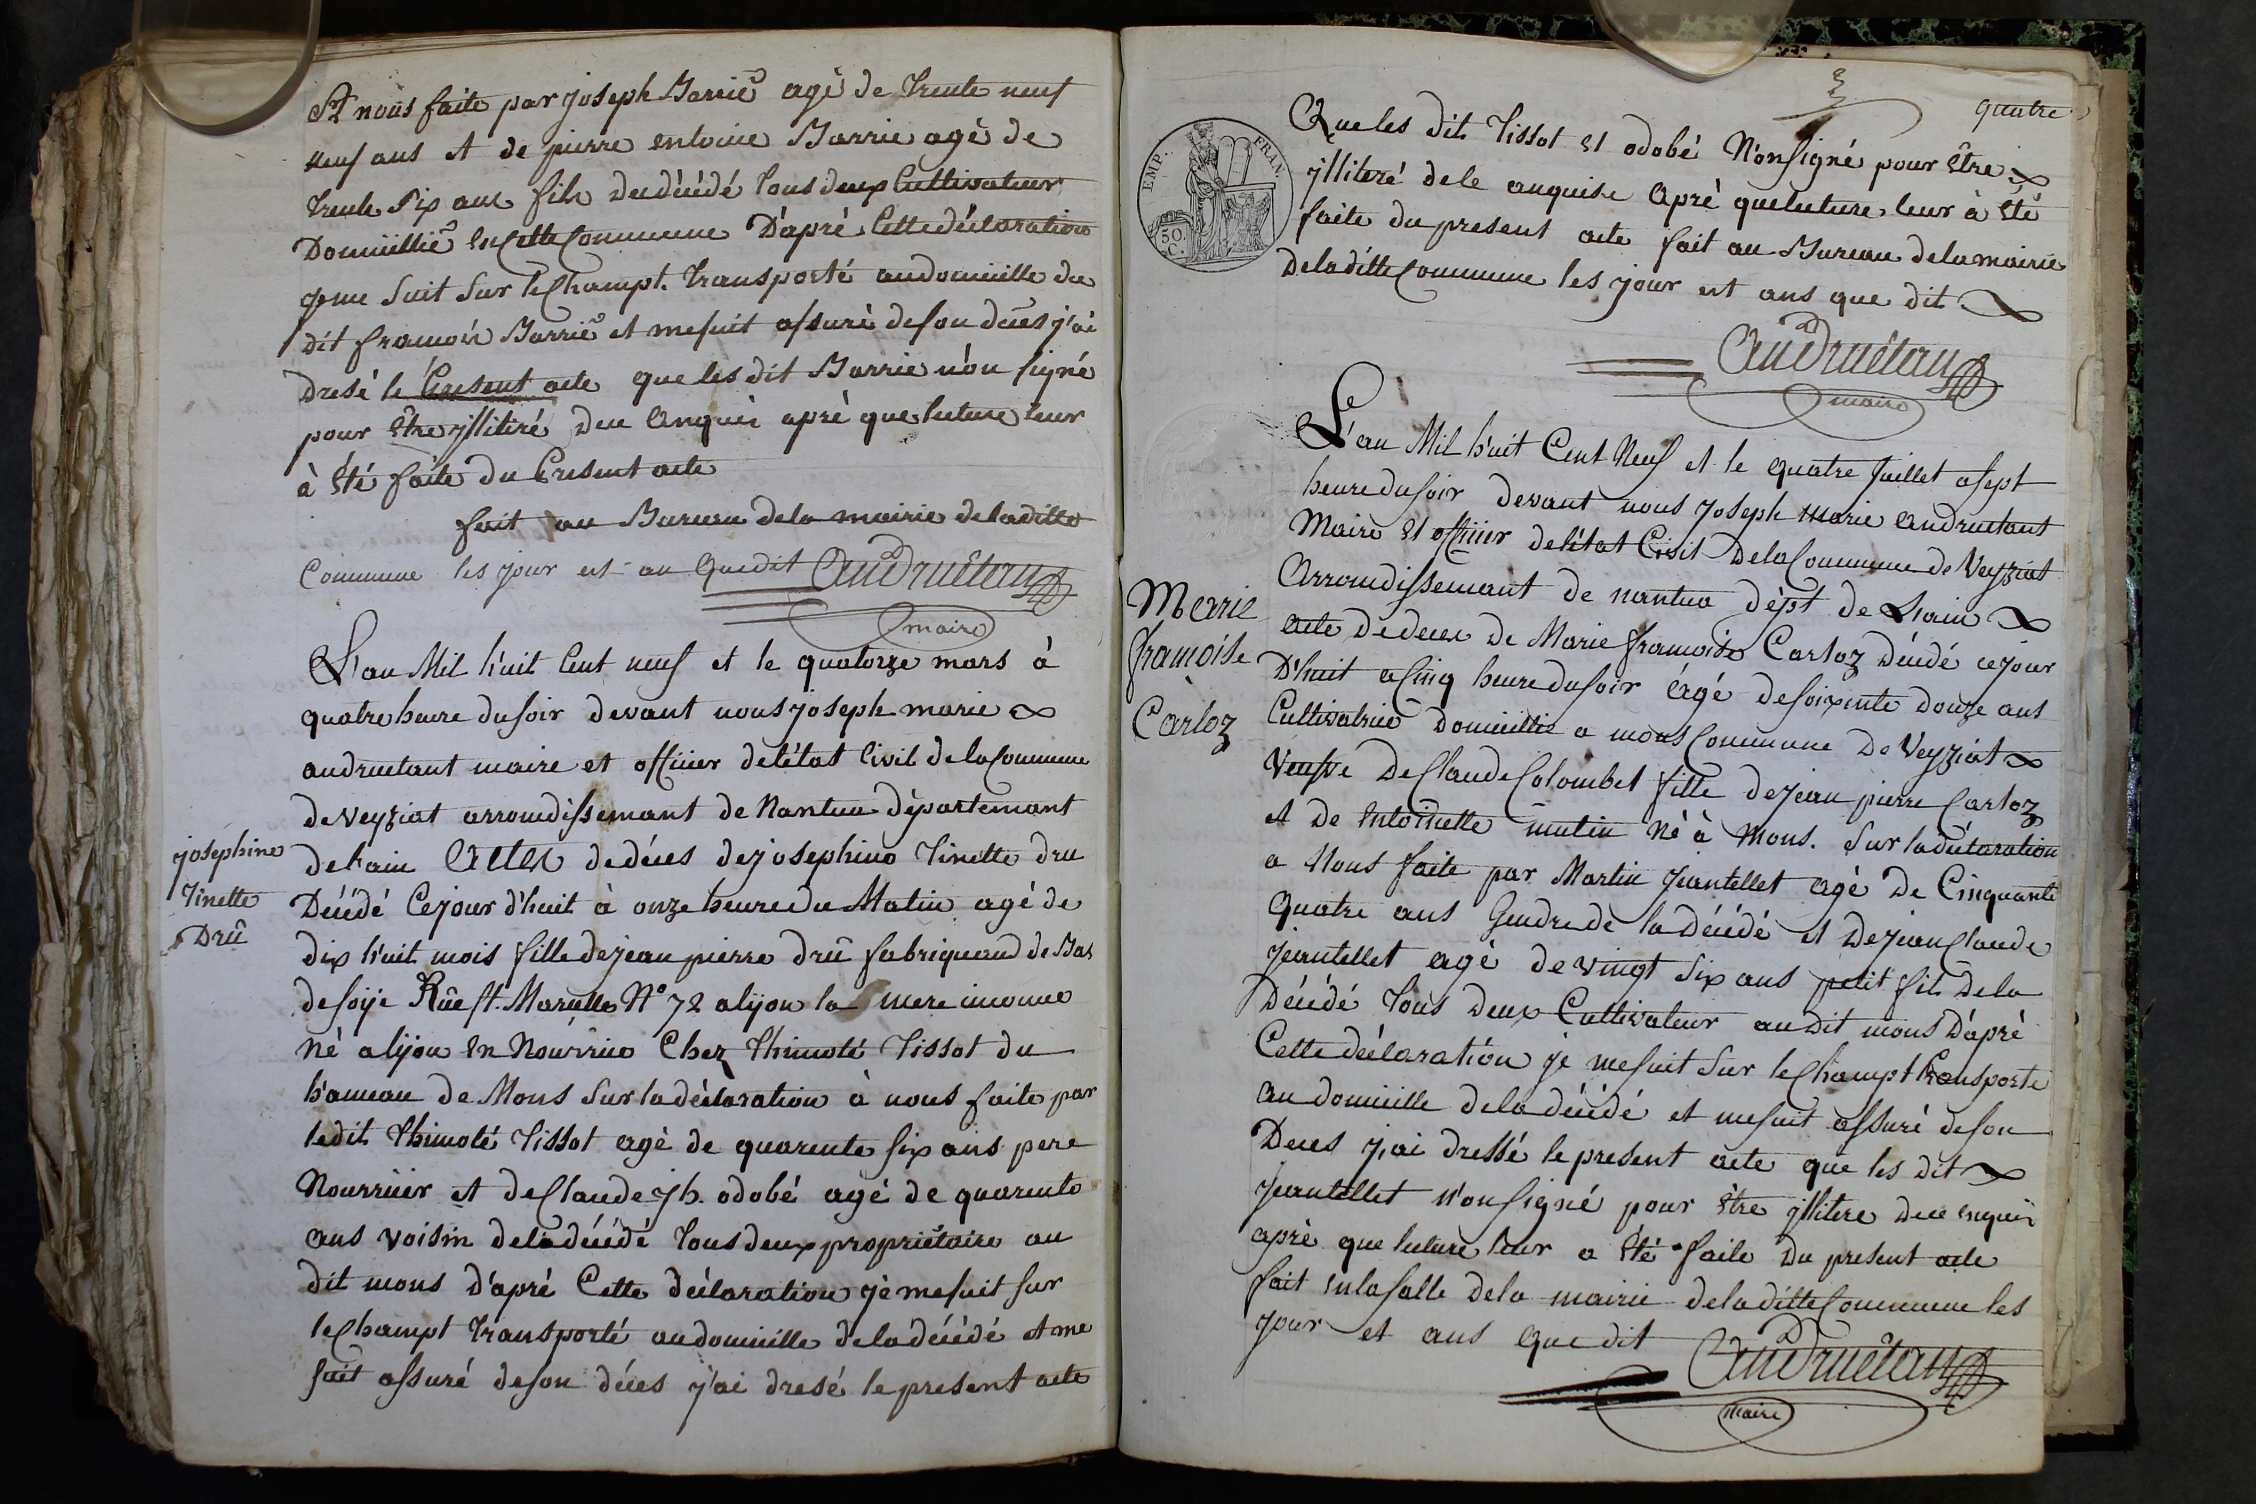 A nous faite par joseph Barrie agé de trente neuf
neuf ans et de pierre entoine Barrie agé de
trente six ans fils du décédé tous deux Cultivateur
Domicillié en Cette Commune D'apré Cette déclaration
je me suit sur le Champt transporté au domicille du
dit francois Barrié et me suit assuré de son déces j'ai
dresé le Present acte que les dit Barrie n'on signé
pour être jlliteré de ce enquis apré que lecture leur
à été faite du Present acte
fait au Bureau de la mairie de la ditte
Commune les jour est an que dit Andruétan
maire
L'an Mil huit Cent neuf et le quatorze mars à
quatre heure du soir devant nous joseph marie
andruetant maire et officier de l'état Civil de la Commune
de veyziat arroudissemant de Nantua département
josephine
tinette
Drû
de l'ain Actes de déces de josephine tinette dru
Décédé Ce jour d'huit à onze heure du Matin agé de
dix huit mois fille de jean pierre drû fabriquand de Bas
de soije Rûe st. Marcelle N° 72 a lyon la mere inconue
né a lijon en Nourrice Chez thimoté tissot du
hameau de Mons sur la déclaration à nous faite par
ledit thimoté tissot agé de quarente six ans pere
Nourricier et de Claude jh. odobé agé de quarente
ans voisin de la décédé tous deux propriétaire au
dit mons d'apré Cette déclaration jé me suit sur
le Champt transporté au domicille de la décédé et me
suit assuré de son déces j'ai dresé le present acte
quatre
Que les dit tissot et odobé N'on signé pour être
jlliteré de le anquise apré que lecture leur à été
faite du present acte fait au Bureau de la mairie
De la ditte Commune les jour est ans que dit
Andruétan
maire
EMP. FRAN.
50 C.
L'an Mil huit Cent Neuf et le quatre juillet a sept
heure du soir devant nous joseph marie andruetant
Maire et officier de l'état Civil De la Commune de Veyziat
Arroudissemant de nantua dépt de L'ain
Marie
francoise
Carloz
acte de deces de Marie francoise Carloz Décédé ce jour
D'huit a Cinq heure du soir agé de soixente douze ans
Cultivatrice Domicillié a mons Commune De Veyziat
Veufve De Claude Colombet fille de jean pierre Carloz
et de entoinette mutin né à Mons. Sur la déclaration
a Nous faite par Martin jeantellet agé De Cinquante
quatre ans Gendre de la décédé et De jean Claude
jeantellet agé de vingt six ans petit fils De la
Décédé tous Deux Cultivateur au dit mons D'apré
Cette déclaration jé me suit sur le Champt transporté
au domicille de la décédé et me suit assuré de son
Deces j'ai dressé le present acte que les dit
jeantellet n'on signé pour être jllitere de ce enquis
apré que lecture leur a été faite Du present acte
fait en la salle de la mairie de la ditte Commune les
jour et ans que dit Andruétan
maire